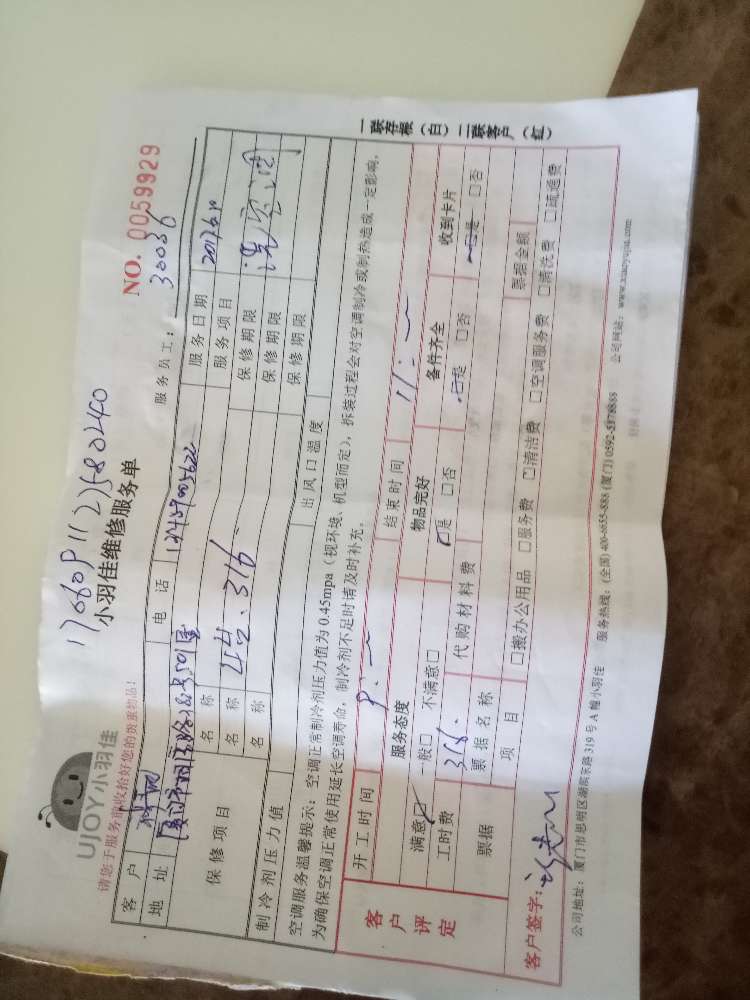 UJOY小羽佳
请您于服务前收拾好您的贵重物品!
小羽佳维修服务单
NO. 0059929
服务员工: 30036
客户
电话
服务日期
地址
服务项目 洗空调
保修项目
名称
保修期限
名称
316
保修期限
名称
保修期限
制冷剂压力值
出风口温度
空调服务温馨提示:空调正常制冷剂压力值为0.45mpa(视环境、机型而定),拆装过程会对空调制冷或制热造成一定影响,
为确保空调正常使用延长空调寿命,制冷剂不足时请及时补充。
客户评定
开工时间 9:
结束时间 11:
服务态度
物品完好
备件齐全
收到卡片
满意☑ 一般□ 不满意□
☑是 □否
☑是 □否
☑是 □否
工时费
代购材料费
票据
票据名称
票据金额
项目
□搬办公用品 □服务费 □清洁费 □空调服务费 □清洗费 □疏通费
客户签字:
公司地址:厦门市思明区湖滨东路319号A幢小羽佳 服务热线:(全国)400-6055-8088 (厦门)0592-5378888 公司网站:www.xiaoyujia.com
一联存根(白)二联客户(红)